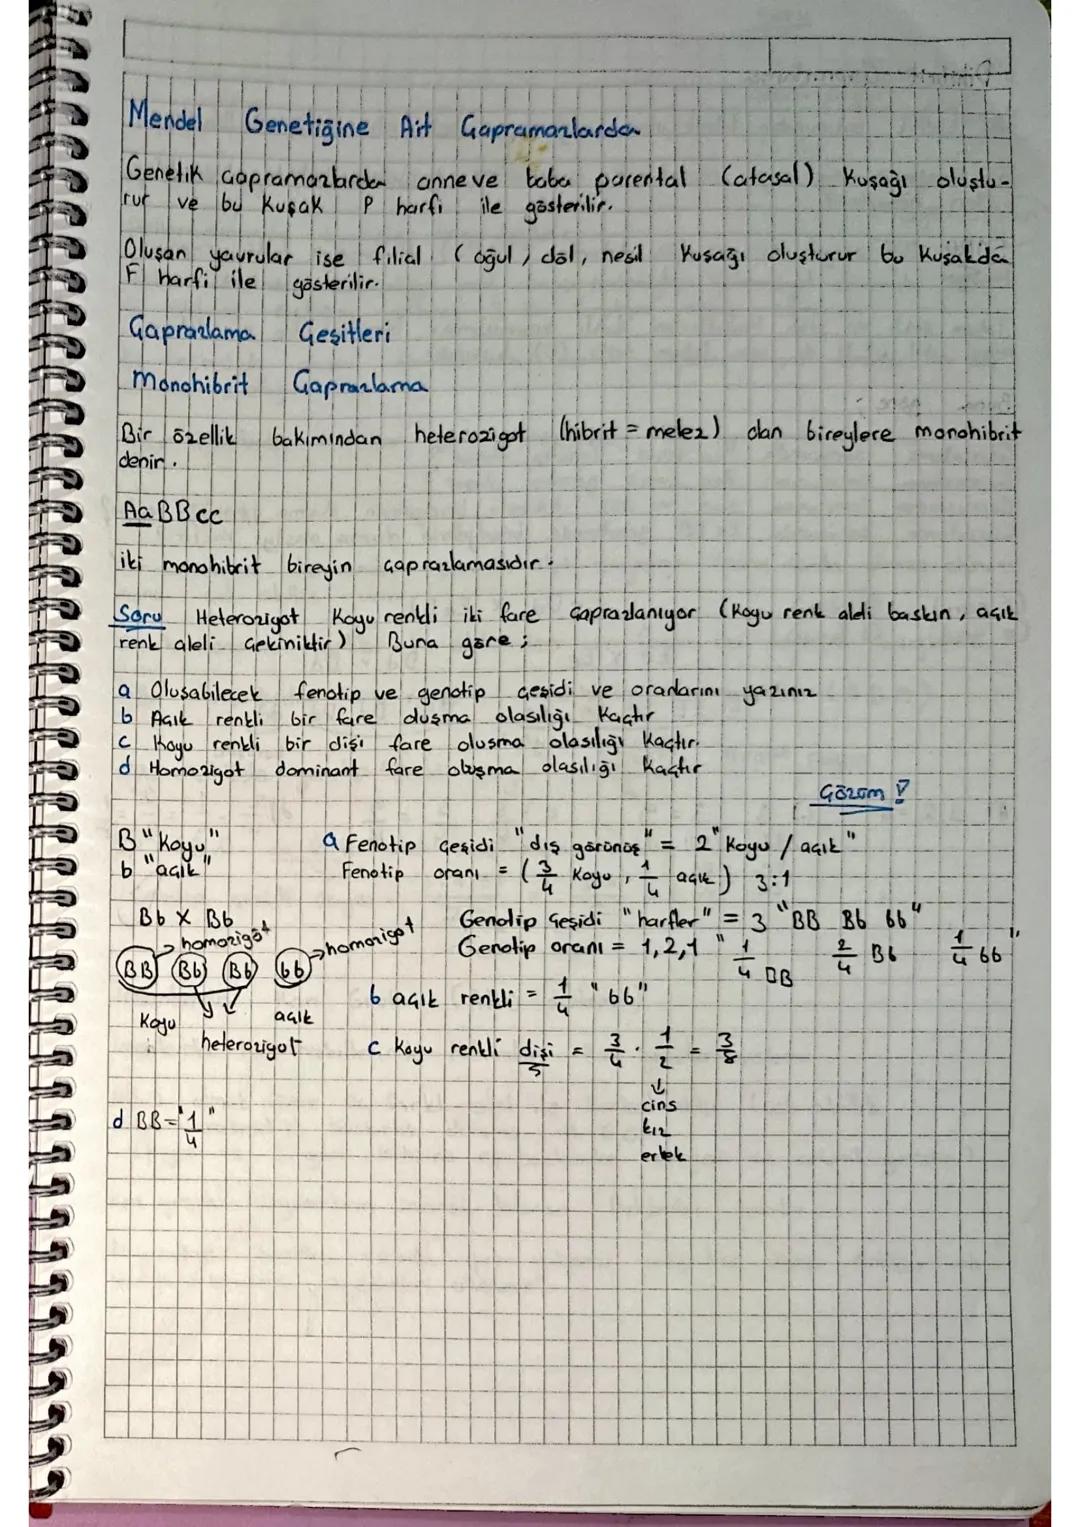 Mendel Genetiğine Ait Çaprazmazlarda
Genetik çaprazmazlarda anne ve baba parental (atasal) Kuşağı oluştu-
rur ve bu Kuşak P harfi ile gösterilir.
Oluşan yavrular ise filial (oğul, döl, nesil Kuşağı oluşturur bu Kuşakda
F harfi ile gösterilir.
Çaprazlama Çeşitleri
Monohibrit Çaprazlama
Bir özellik bakımından heterozigot (hibrit = melez) olan bireylere monohibrit
denir.
AaBBcc
iki monohibrit bireyin çaprazlamasıdır.
Soru Heterozigot Koyu renkli iki fare çaprazlanıyor (Koyu renk aleli baskın, açık
renk aleli çekiniktir) Buna göre;
a Oluşabilecek fenotip ve genotip çeşidi ve oranlarını yazınız
b Açık renkli bir fare oluşma olasılığı Kaçtır
c Koyu renkli bir dişi fare oluşma olasılığı Kaçtır.
d Homozigot dominant fare oluşma olasılığı Kaçtır
Çözüm
B "Koyu"
b "açık"
a Fenotip çeşidi "dış görünüş" = 2 "Koyu / açık"
Fenotip oranı = (3/4 Koyu, 1/4 açık) 3:1
Bb X Bb
Genotip Çeşidi "harfler" = 3 "BB Bb bb"
homozigot
homozigot
Genotip oranı = 1,2,1 "1/4 BB 2/4 Bb 1/4 bb"
BB Bb Bb bb
b açık renkli = 1/4 "bb"
Koyu
açık
heterozigot
c Koyu renkli dişi = 3/4 . 1/2 = 3/8
cins
kız
erkek
d BB = "1/4"